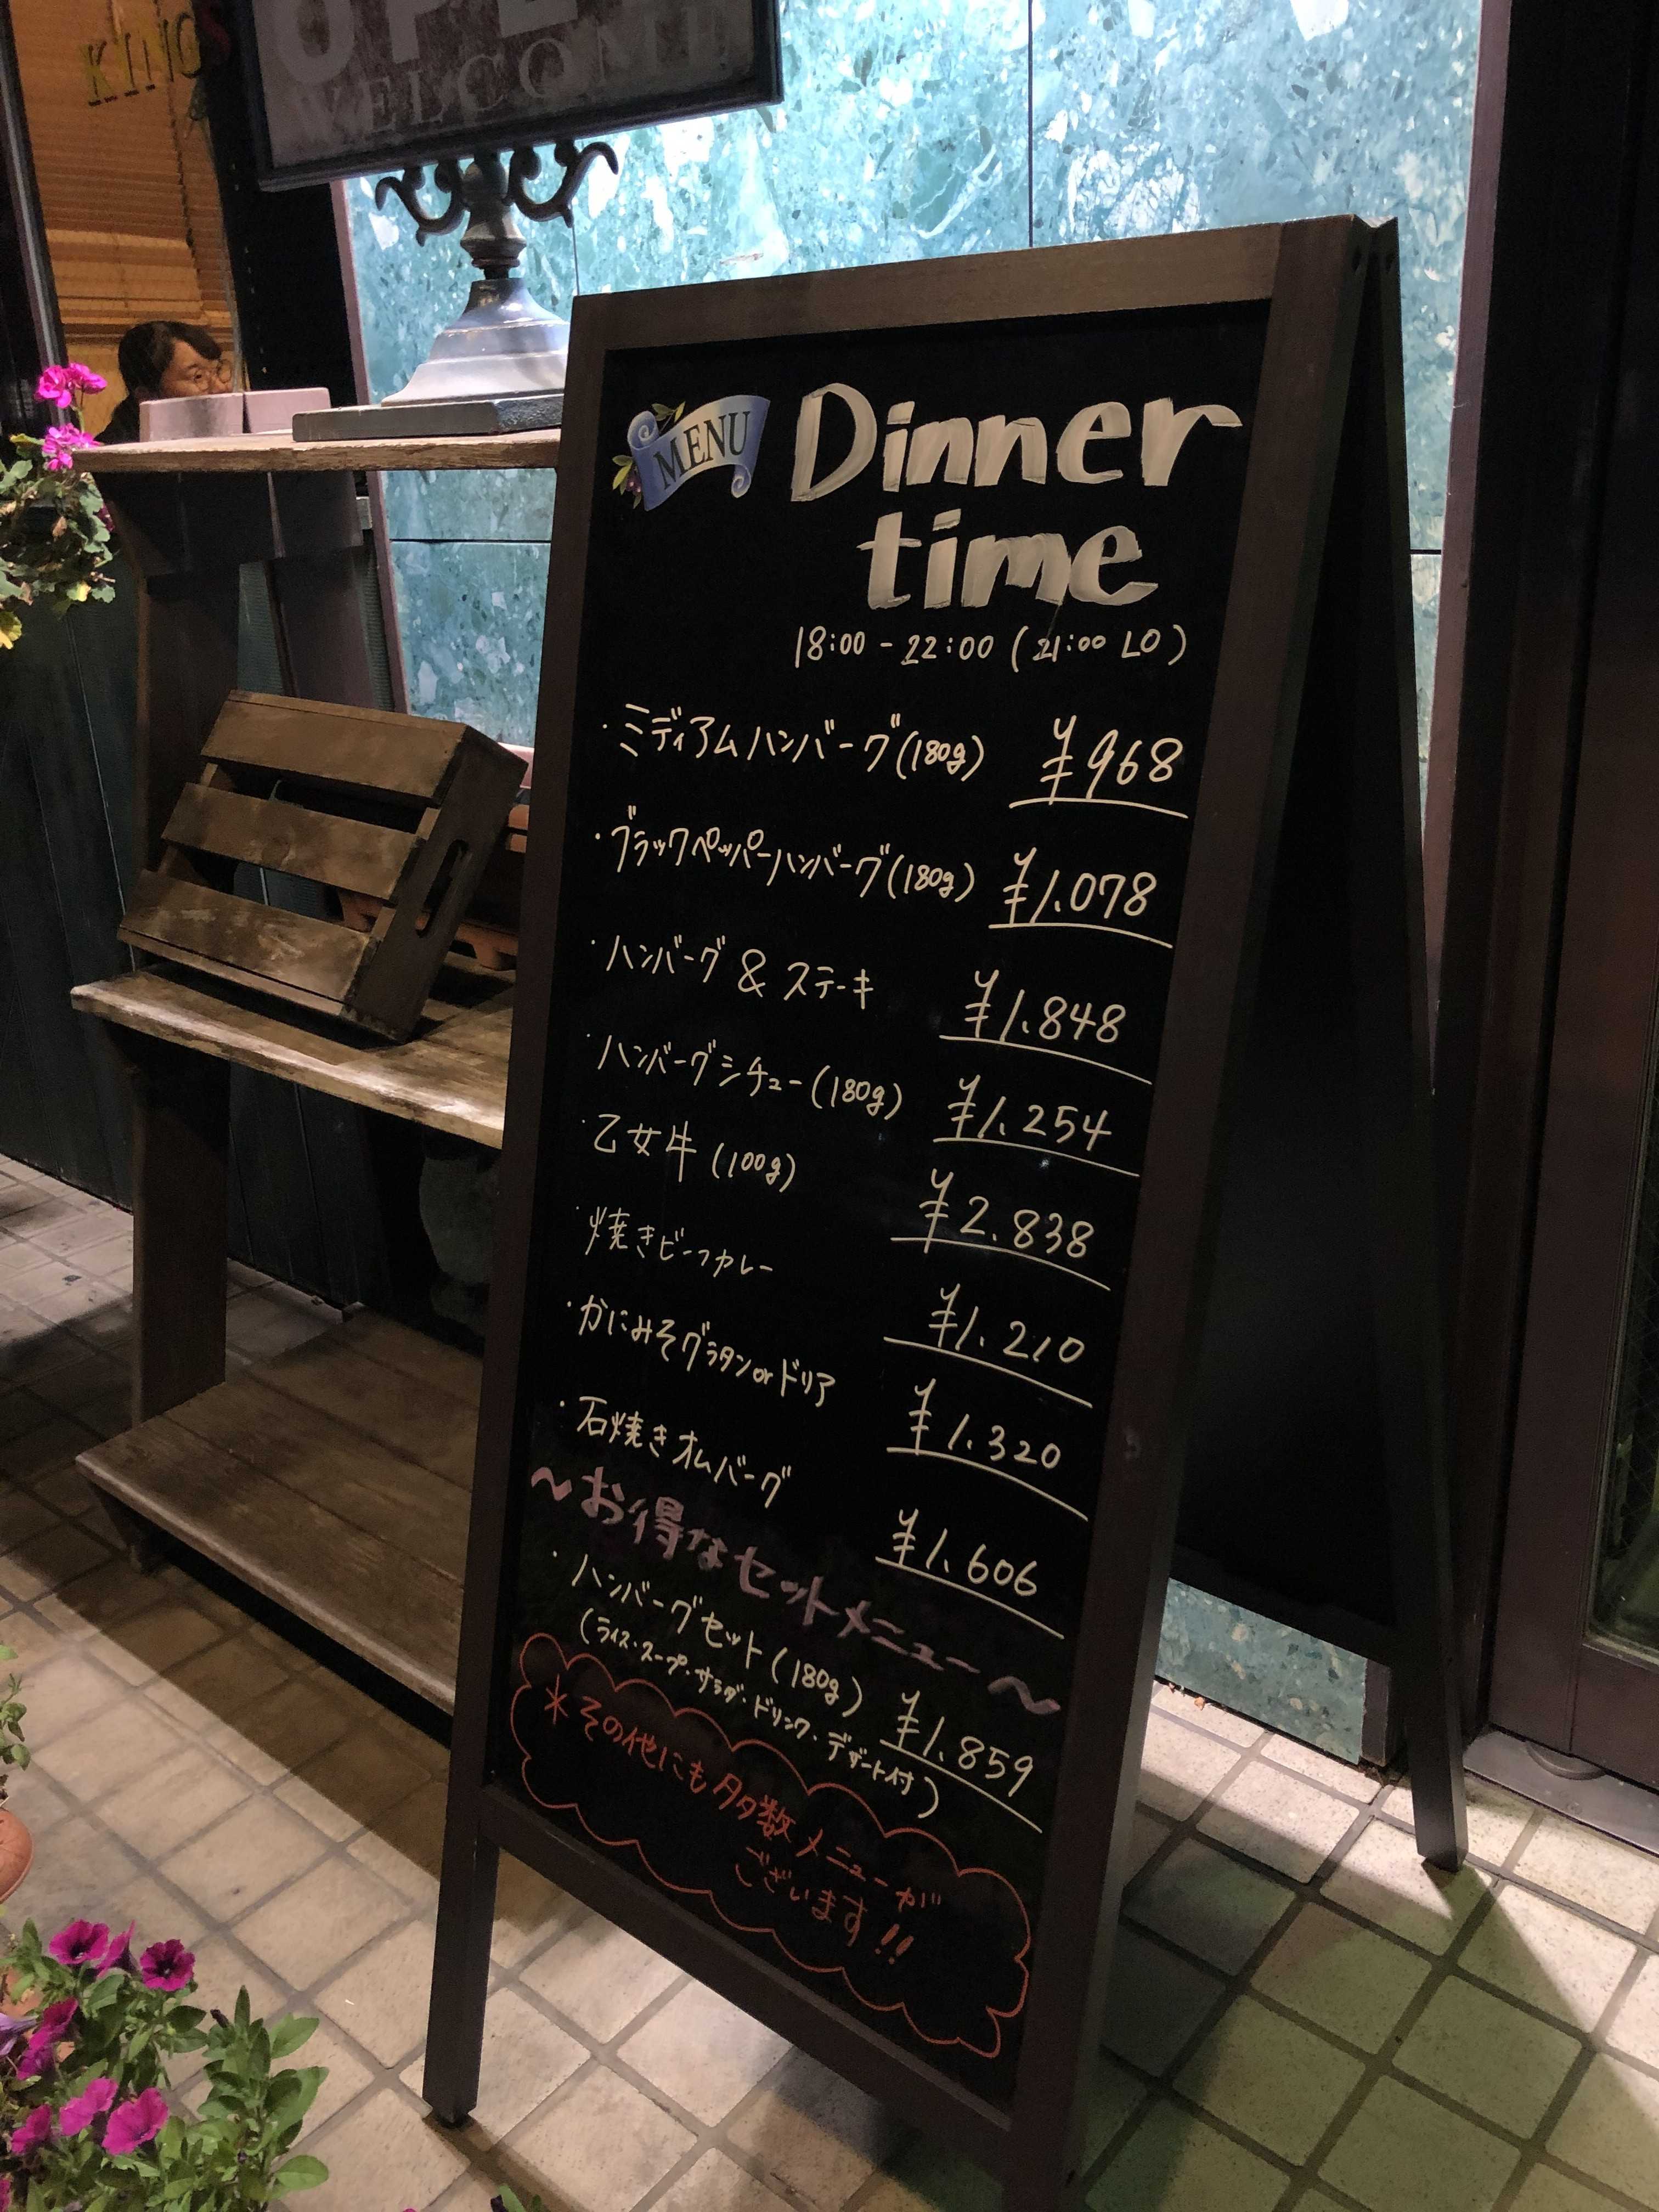 KINGS
OPE
WELCOME
MENU
Dinner
time
18:00 - 22:00 (21:00 LO)
・ミディアムハンバーグ(180g) ¥968
・ブラックペッパーハンバーグ(180g) ¥1.078
・ハンバーグ & ステーキ ¥1.848
・ハンバーグシチュー(180g) ¥1.254
・乙女牛(100g) ¥2.838
・焼きビーフカレー ¥1.210
・かにみそグラタンorドリア ¥1.320
・石焼きオムバーグ ¥1.606
～お得なセットメニュー～
・ハンバーグセット(180g) ¥1.859
(ライス・スープ・サラダ・ドリンク・デザート付)
＊その他にも多数メニューが
ございます!!